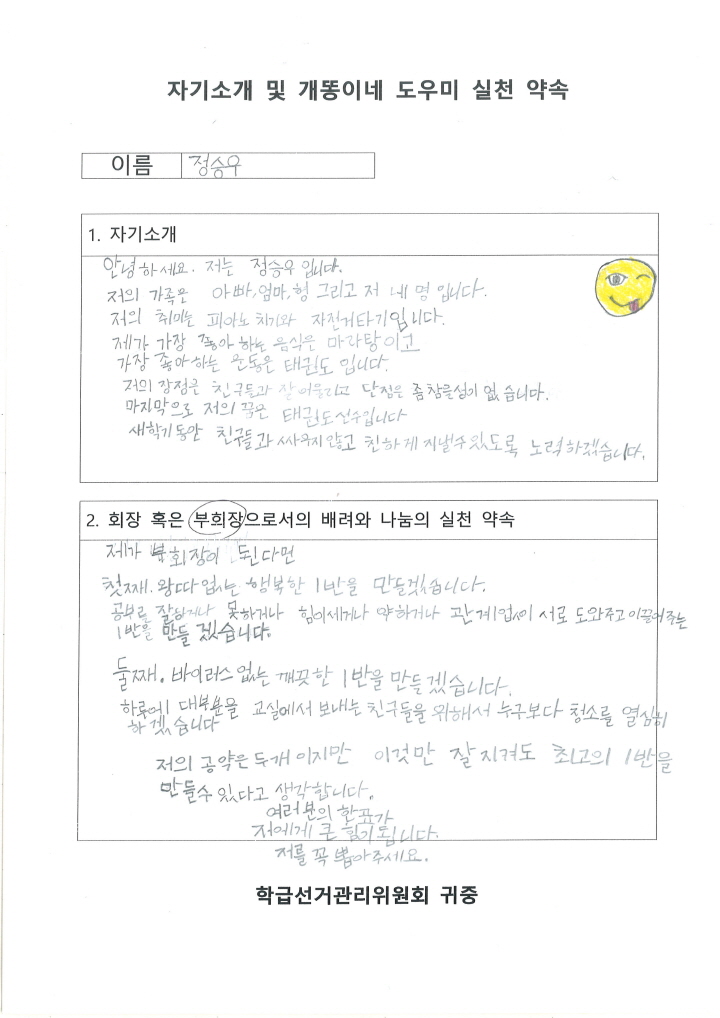 자기소개 및 개똥이네 도우미 실천 약속
이름 정승우
1. 자기소개
안녕하세요. 저는 정승우 입니다.
저의 가족은 아빠, 엄마, 형 그리고 저 네 명 입니다.
저의 취미는 피아노 치기와 자전거타기입니다.
제가 가장 좋아 하는 음식은 마라탕이고
가장 좋아하는 운동은 태권도 입니다.
저의 장점은 친구들과 잘 어울리고 단점은 좀 참을성이 없 습니다.
마지막으로 저의 꿈은 태권도선수입니다
새학기동안 친구들과 싸우지않고 친하게 지낼수있도록 노력하겠습니다.
2. 회장 혹은 부회장으로서의 배려와 나눔의 실천 약속
제가 부회장이 된다면
첫째. 왕따 없는 행복한 1반을 만들겠습니다.
공부를 잘하거나 못하거나 힘이세거나 약하거나 관계없이 서로 도와주고 이끌어주는
1반을 만들 겠습니다.
둘째. 바이러스 없는 깨끗한 1반을 만들겠습니다.
하루에 대부분을 교실에서 보내는 친구들을 위해서 누구보다 청소를 열심히
하 겠습니다
저의 공약은 두개 이지만 이것만 잘지켜도 최고의 1반을
만들수 있다고 생각합니다.
여러분의 한표가
저에게 큰 힘이됩니다.
저를 꼭 뽑아주세요.
학급선거관리위원회 귀중